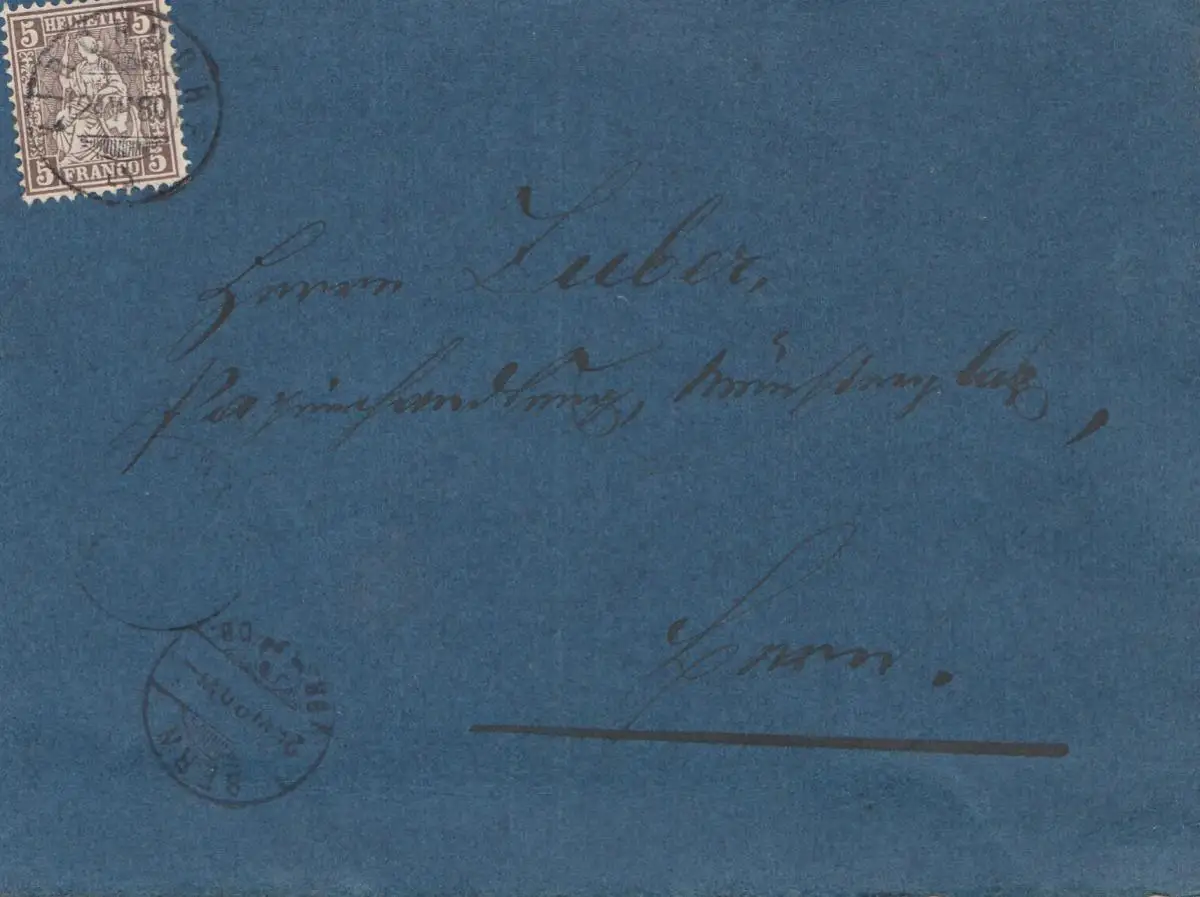 5 HELVETIA 5
5 FRANCO 5
Herrn Zuber,
Papierhandlung, Münsterplatz,
Bern.
BERN